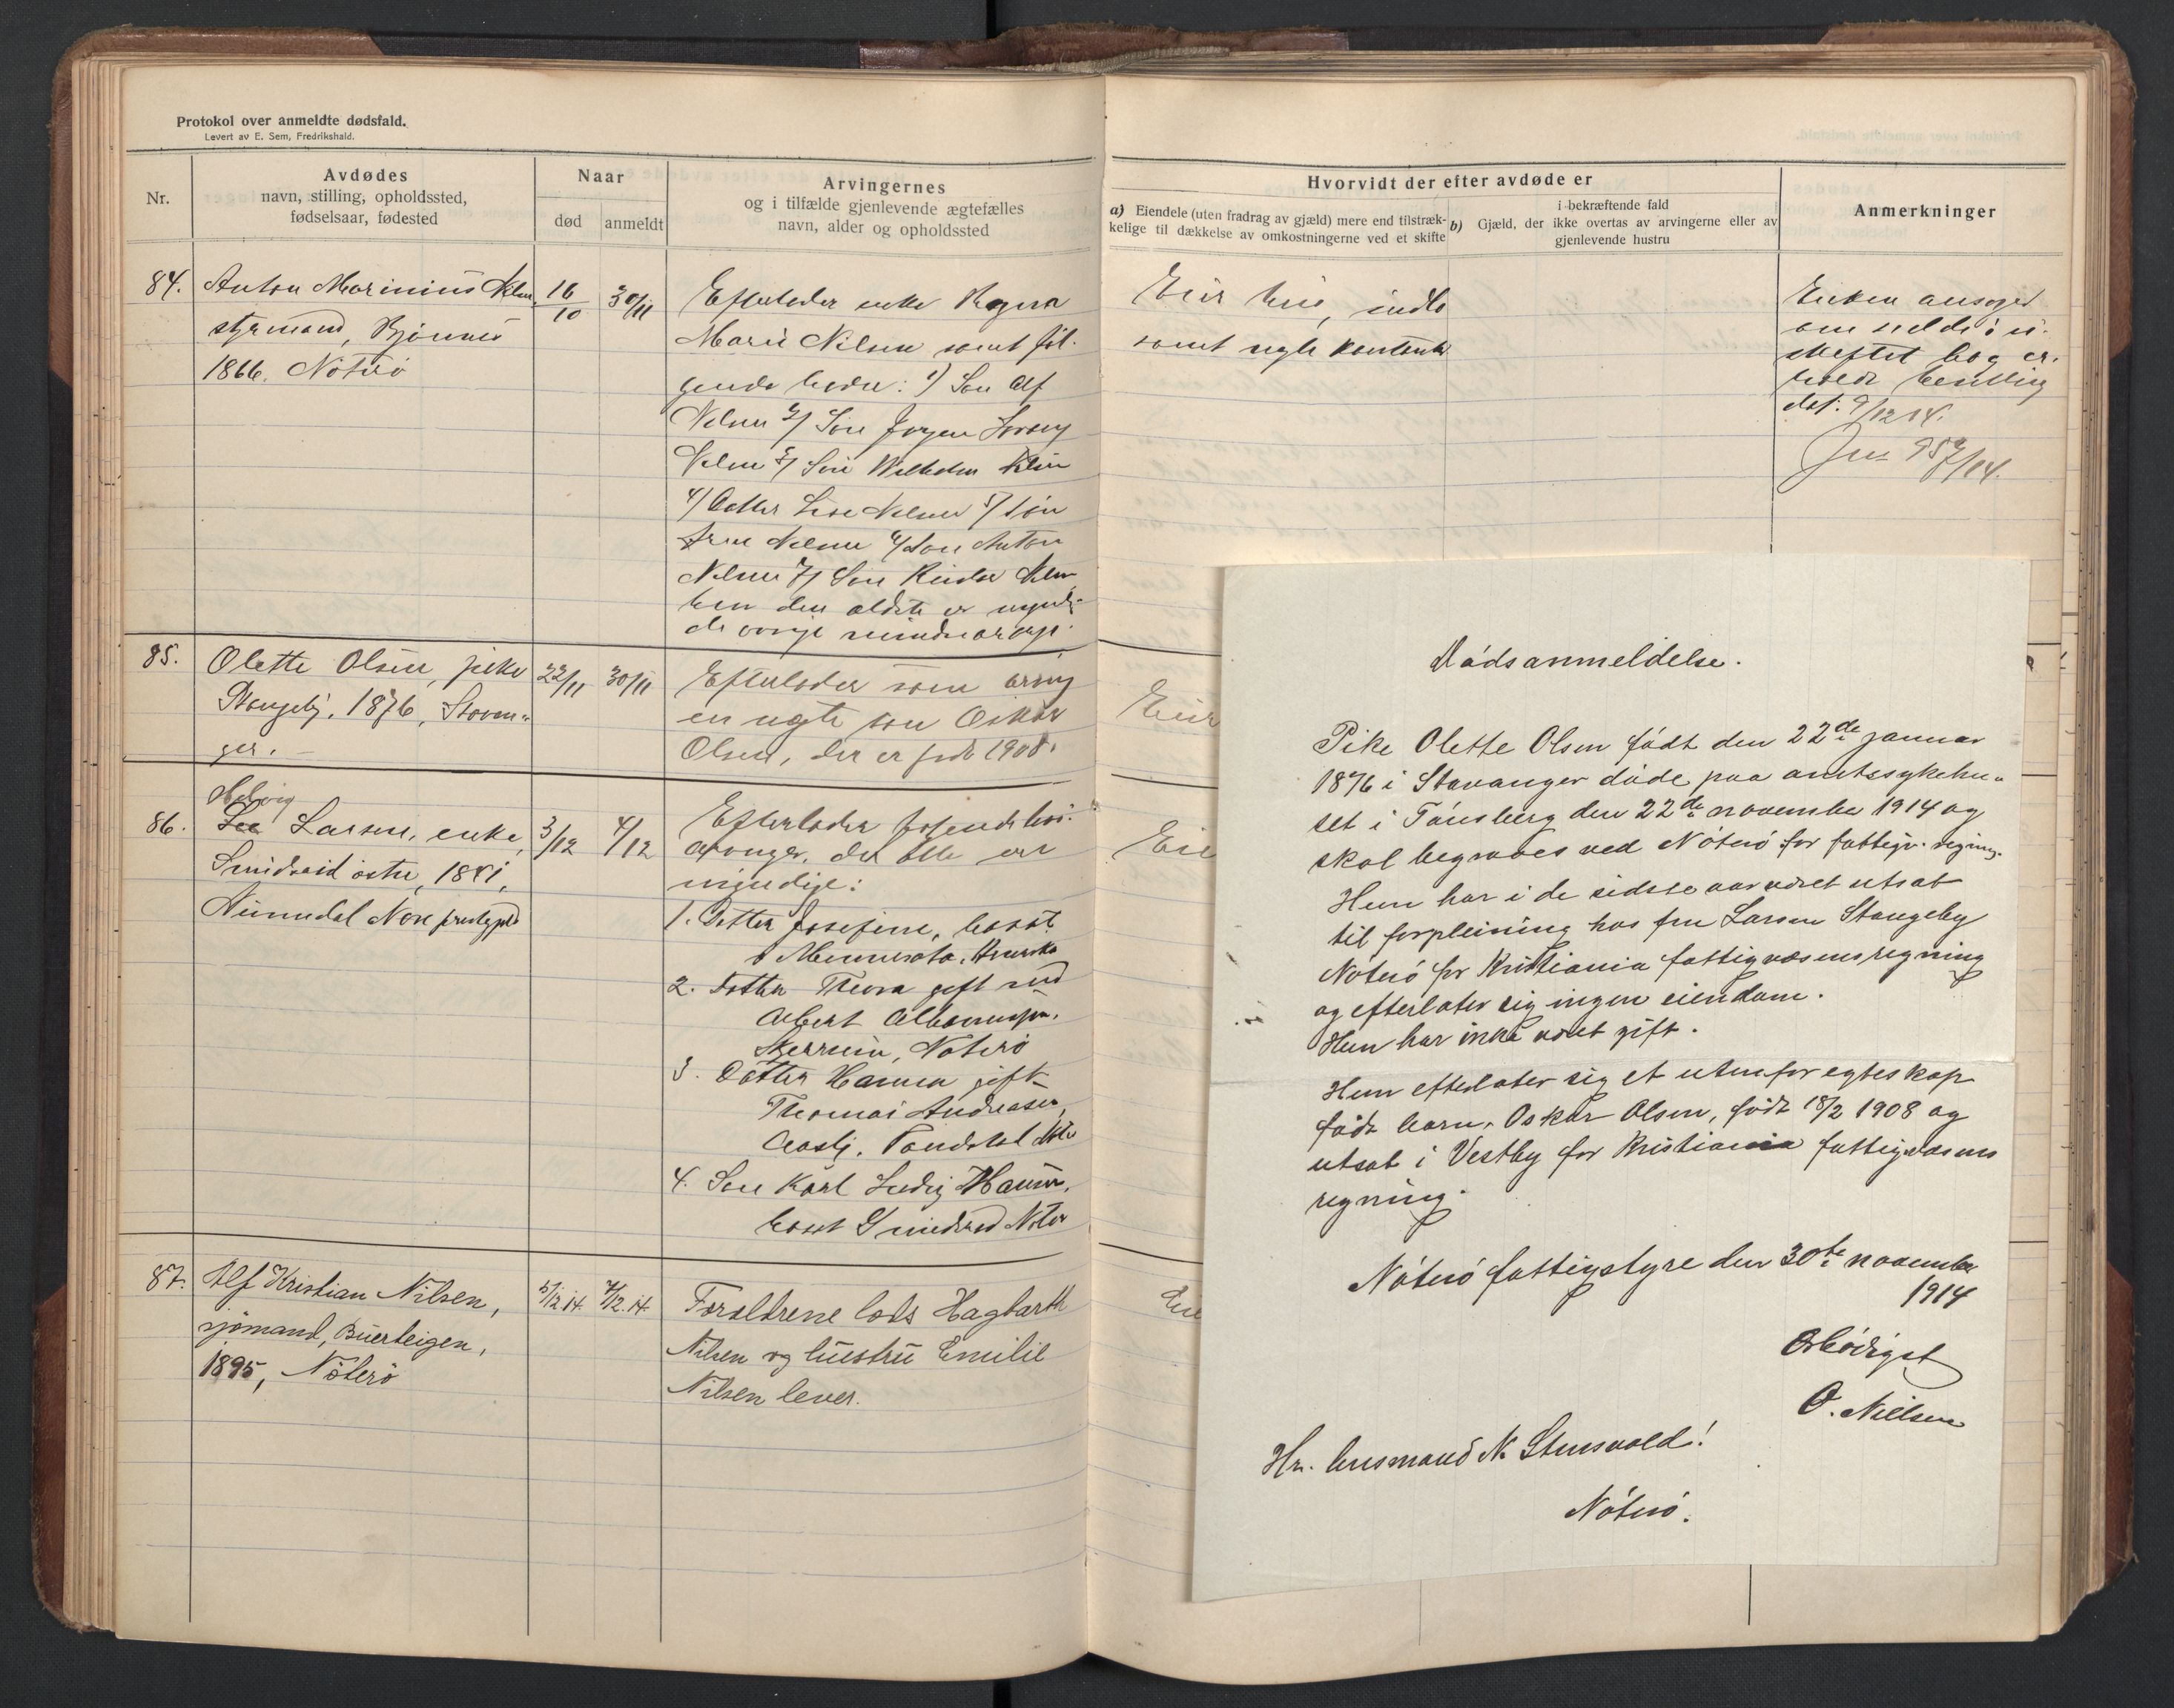 Protokol over anmeldte dødsfald.
Levert av E. Sem, Fredrikshald.
Nr.
Avdødes
navn, stilling, opholdssted,
fødselsaar, fødested
Naar
død
anmeldt
Arvingernes
og i tilfælde gjenlevende ægtefælles
navn, alder og opholdssted
84.
Anton Marinius Nilsen
styrmand, Bjønnes
1866. Nøterø
16/10
30/11
Efterlader enke Ragna
Marie Nilsen samt føl-
gende barn: 1) Søn Alf
Nilsen 2) Søn Jørgen
Nilsen 3) Søn Wilhelm Nilsen
4) Datter Lise Nilsen 5) Søn
Nilsen 6) Søn Anton
Nilsen 7) Søn Nilsen
kun den ældste er myndig
de øvrige mindreaarige.
85.
Olette Olsen, pike
Stangeby, 1876, Stavan-
ger.
22/11
30/11
Efterlader som arving
en uegte søn Oskar
Olsen, der er født 1908.
86.
Helvig
Larsen, enke,
Smidsrød østre, 1841,
Numedal Nore prestegjeld
3/12
4/12
Efterlader følgende livs-
arvinger, der alle er
myndige:
1. Datter Josefine, bosat
i Minnesota, Amerika
2. Datter Thora gift med
Albert
Skjerrve, Nøterø
3. Datter Hanna gift
Thomas Andreasen,
4. Søn Karl Ludvig Hansen,
bosat Smidsrød Nøterø
87.
Alf Kristian Nilsen,
sjømand, Buerteigen,
1895, Nøterø
5/12 14.
7/12. 14.
Forældrene lods Hagbarth
Nilsen og hustru Emilie
Nilsen lever.
Hvorvidt der efter avdøde er
a) Eiendele (uten fradrag av gjæld) mere end tilstræk-
kelige til dækkelse av omkostningerne ved et skifte
i bekræftende fald
b) Gjæld, der ikke overtas av arvingerne eller av
gjenlevende hustru
Anmerkninger
Eier hus, indbo
samt nogle kontanter
Enken ansøger
om sidde i u-
skiftet bo og er-
holdt bevilling
dat. 9/12 14.
Dødsanmeldelse.
Pike Olette Olsen født den 22de januar
1876 i Stavanger døde paa amtssykehu-
set i Tønsberg den 22de november 1914 og
skal begraves ved Nøterø for fattigv. regning.
Hun har i de sidste aar været utsat
til forpleining hos fru Larsen Stangeby
Nøterø for Kristiania fattigvæsens regning
og efterlater sig ingen eiendom.
Hun har ikke været gift.
Hun efterlater sig et utenfor egteskap
født barn, Oskar Olsen, født 18/2 1908 og
utsat i Vestby for Kristiania fattigvæsens
regning.
Nøterø fattigstyre den 30te november
1914
Ærbødigst
O. Nilsen
Hr. lensmand N. Stensvold!
Nøterø.